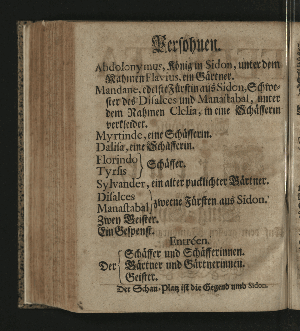 Persohnen.
Abdolonymus, König in Sidon, unter dem
Nahmen Flavius, ein Gärtner.
Mandane, edelste Fürstin aus Sidon, Schwe-
ster des Disalces und Manastabal, unter
dem Nahmen Clelia, in eine Schäfferin
verkleidet.
Myrtinde, eine Schäfferin.
Dalisa, eine Schäfferin.
Florindo
Tyrsis } Schäffer.
Sylvander, ein alter pucklichter Gärtner.
Disalces
Manastabal } zweene Fürsten aus Sidon.
Zwey Geister.
Ein Gespenst.
Entréen.
Schäffer und Schäfferinnen.
Der { Gärtner und Gärtnerinnen.
Geister.
Der Schau-Platz ist die Gegend umb Sidon.